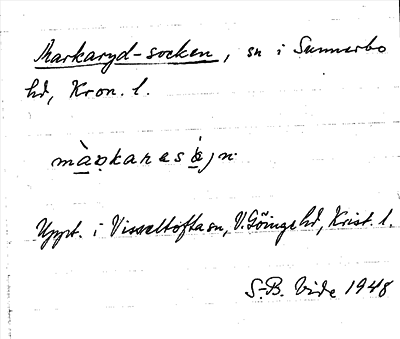 Markaryd-socken, sn i Sunnerbo
hd, Kron. l.
Uppt. i Visseltofta sn, V. Göinge hd, Krist. l.
S-B. Vide 1948